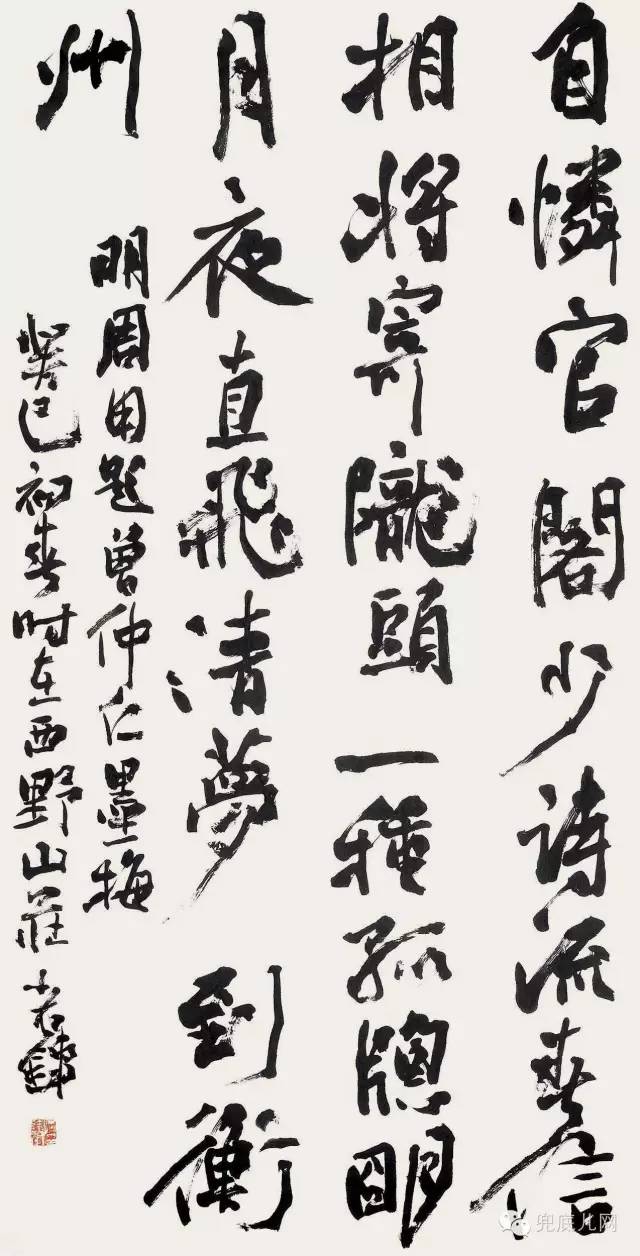 自憐官閣少詩流春信
相將寄隴頭一種孤牕明
月夜直飛清夢到衡
州
明周用題曾仲仁墨梅
癸巳初春时在西野山莊
兜底儿网